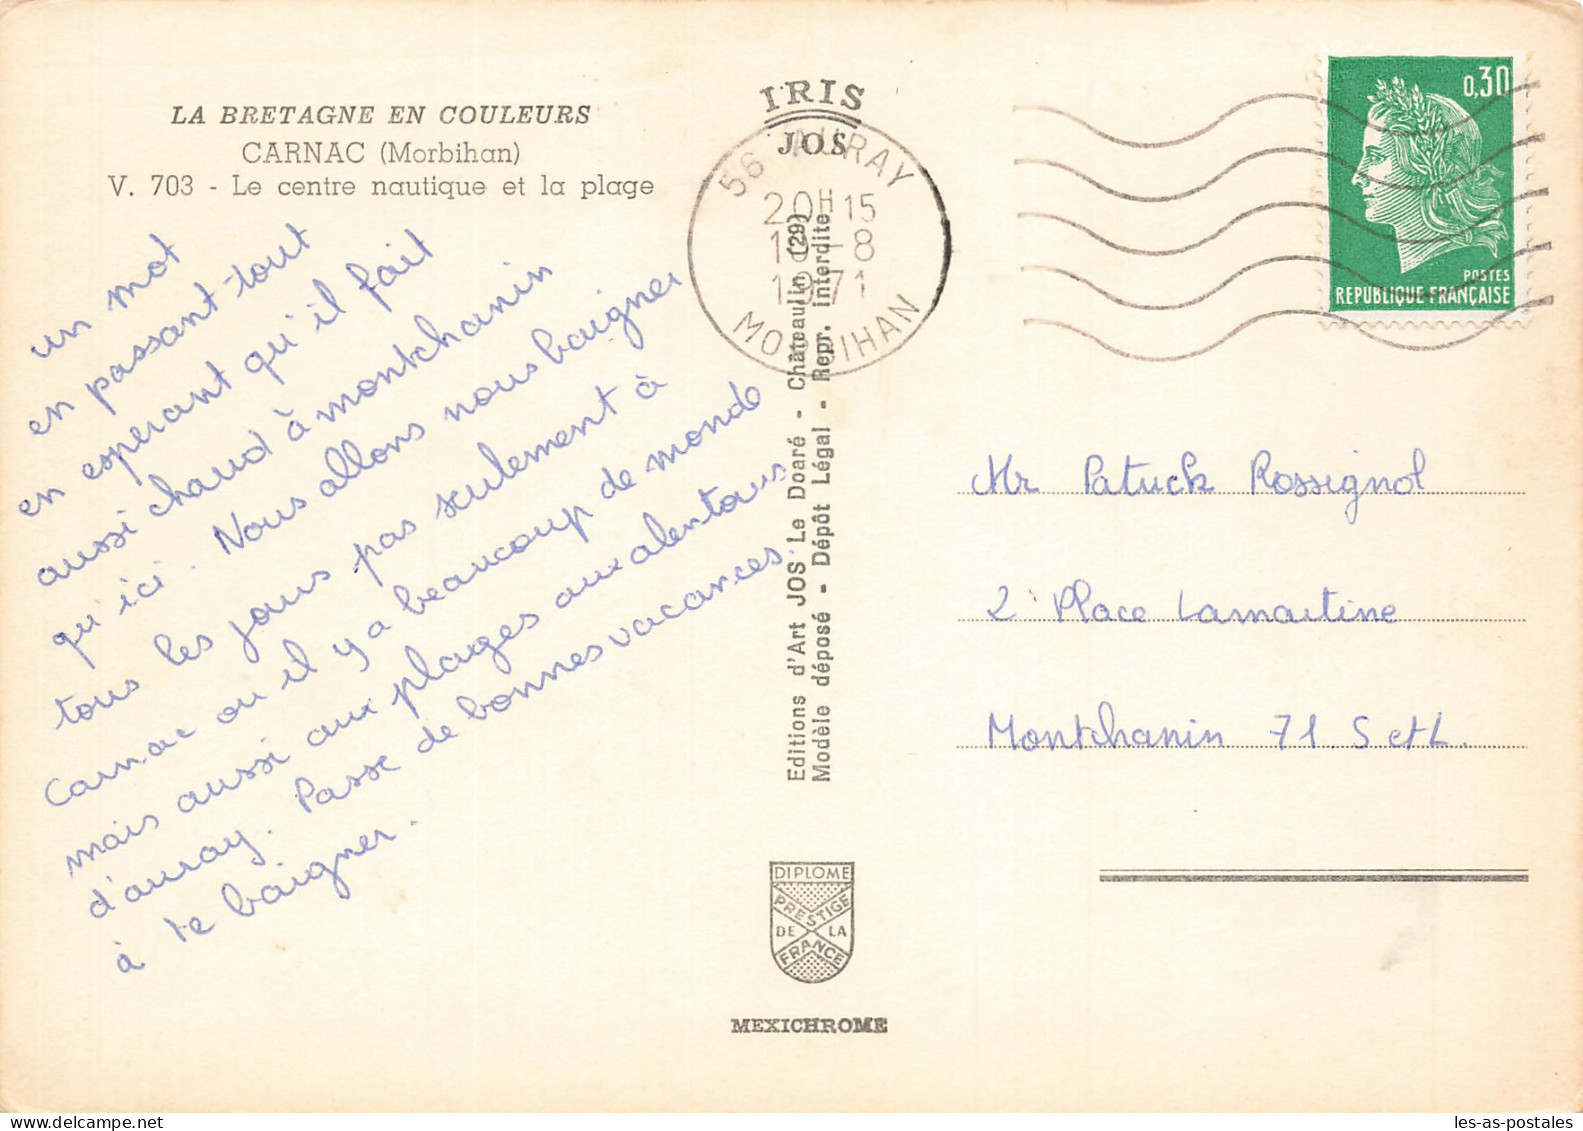 LA BRETAGNE EN COULEURS
CARNAC (Morbihan)
V. 703 - Le centre nautique et la plage
un mot
en passant tout
en esperant qu'il fait
aussi chaud à montchanin
qu'ici. Nous allons nous baigner
tous les jours pas seulement à
Carnac ou il y a beaucoup de monde
mais aussi aux plages aux alentours
d'auray. Passe de bonnes vacances
à te baigner.
IRIS
JOS
56 AURAY
20H15
-8
1971
MORBIHAN
Editions d'Art JOS Le Doaré - Châteaulin (29)
Modèle déposé - Dépôt Légal - Repr. interdite
DIPLOME
PRESTIGE
DE LA
FRANCE
MEXICHROME
0,30
POSTES
REPUBLIQUE FRANÇAISE
Mr Patrick Rossignol
2 Place Lamartine
Montchanin 71 S et L.
les-as-postales